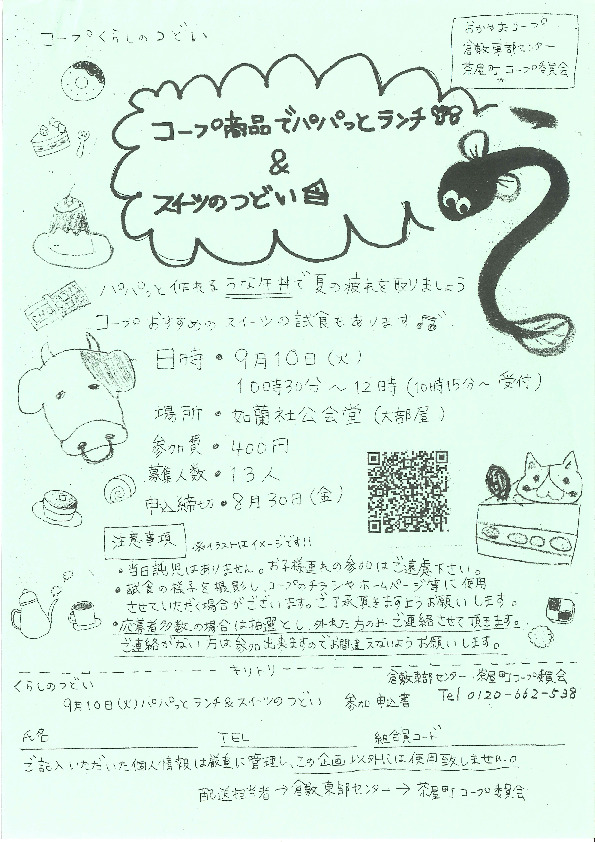 コープくらしのつどい
おかやまコープ
倉敷東部センター
茶屋町コープ委員会
コープ商品でパパっとランチ
&
スイーツのつどい
パパッと作れるうな牛丼で夏の疲れを取りましょう
コープおすすめのスイーツの試食もあります♬
日時・9月10日(火)
10時30分〜12時(10時15分〜受付)
場所・如蘭社公会堂(大部屋)
参加費・400円
募集人数・13人
申込締切・8月30日(金)
注意事項 ※イラストはイメージです!!
・当日託児はありません。お子様連れの参加はご遠慮下さい。
・試食の様子を撮影し、コープのチラシやホームページ等に使用
させていただく場合がございます。ご了承頂きますようお願いします。
・応募者多数の場合は抽選とし、外れた方のみご連絡させて頂きます。
ご連絡がない方は参加出来ますのでお間違えないようお願いします。
キリトリ
くらしのつどい
倉敷東部センター・茶屋町コープ委員会
9月10日(火)パパッとランチ&スイーツのつどい 参加申込書 Tel 0120-662-538
氏名 TEL 組合員コード
ご記入いただいた個人情報は厳重に管理し、この企画以外には使用致しません。
配送担当者→倉敷東部センター→茶屋町コープ委員会